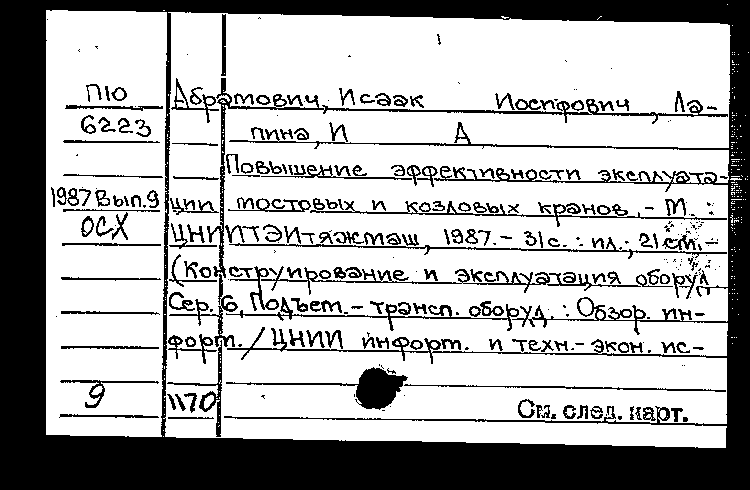 П10 Абрамович, Исаак Иосифович, Ла-
6223 пина, И А
Повышение эффективности эксплуата-
1987 Вып.9 ции мостовых и козловых кранов. - М. :
ОСХ ЦНИИТЭИтяжмаш, 1987. - 31 с. : ил.; 21 см. -
(Конструирование и эксплуатация оборуд.
Сер. 6, Подъем.-трансп. оборуд. : Обзор. ин-
форм. / ЦНИИ информ. и техн.-экон. ис-
9 1170 См. след. карт.